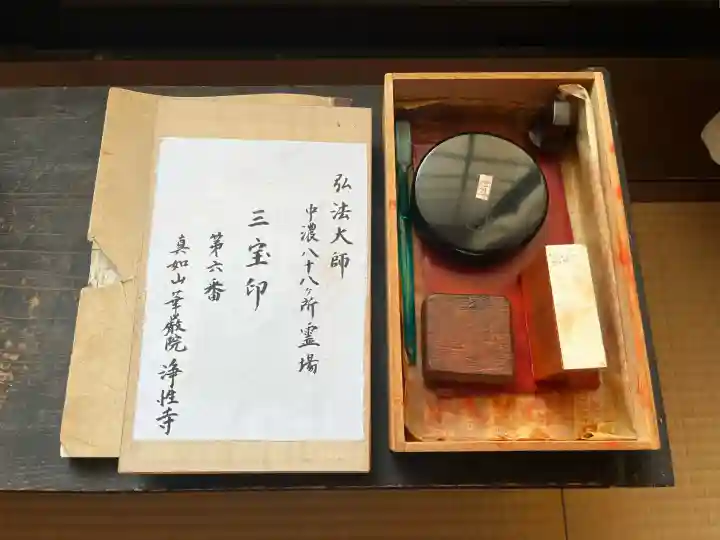 弘法大師
中濃八十八ヶ所霊場
三宝印
第六番
真如山華厳院浄性寺